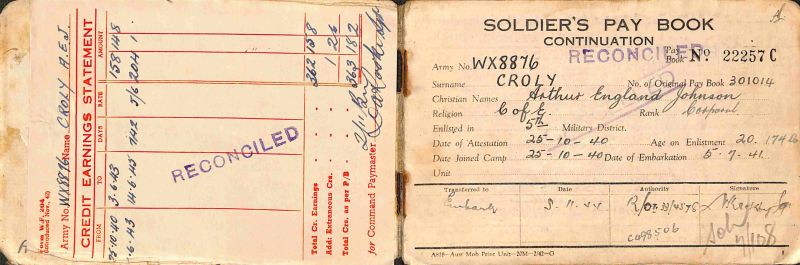 Form W.S. 204
(Introduced Nov., 42)
Army No. WX8876 Name CROLY A.E.J.
CREDIT EARNINGS STATEMENT
FROM TO DAYS RATE AMOUNT
25-10-40 3-6-43
4-6-43 14-6-45 742 5/6 204 1
RECONCILED
Total Cr. Earnings 362 15 8
Add: Extraneous Crs. 1 2 6
Total Crs. as per P/B 363 18 2
for Command Paymaster
SOLDIER'S PAY BOOK
CONTINUATION
RECONCILED
Pay Book No. 22257 C
Army No. WX8876
Surname CROLY No. of Original Pay Book 301014
Christian Names Arthur England Johnson
Religion C of E. Rank Corporal
Enlisted in 5th Military District.
Date of Attestation 25-10-40 Age on Enlistment 20
Date Joined Camp 25-10-40 Date of Embarkation 5.7.41.
Unit
Transferred to Date Authority Signature
A818—Aust Mob Print Unit—20M—2/42—G